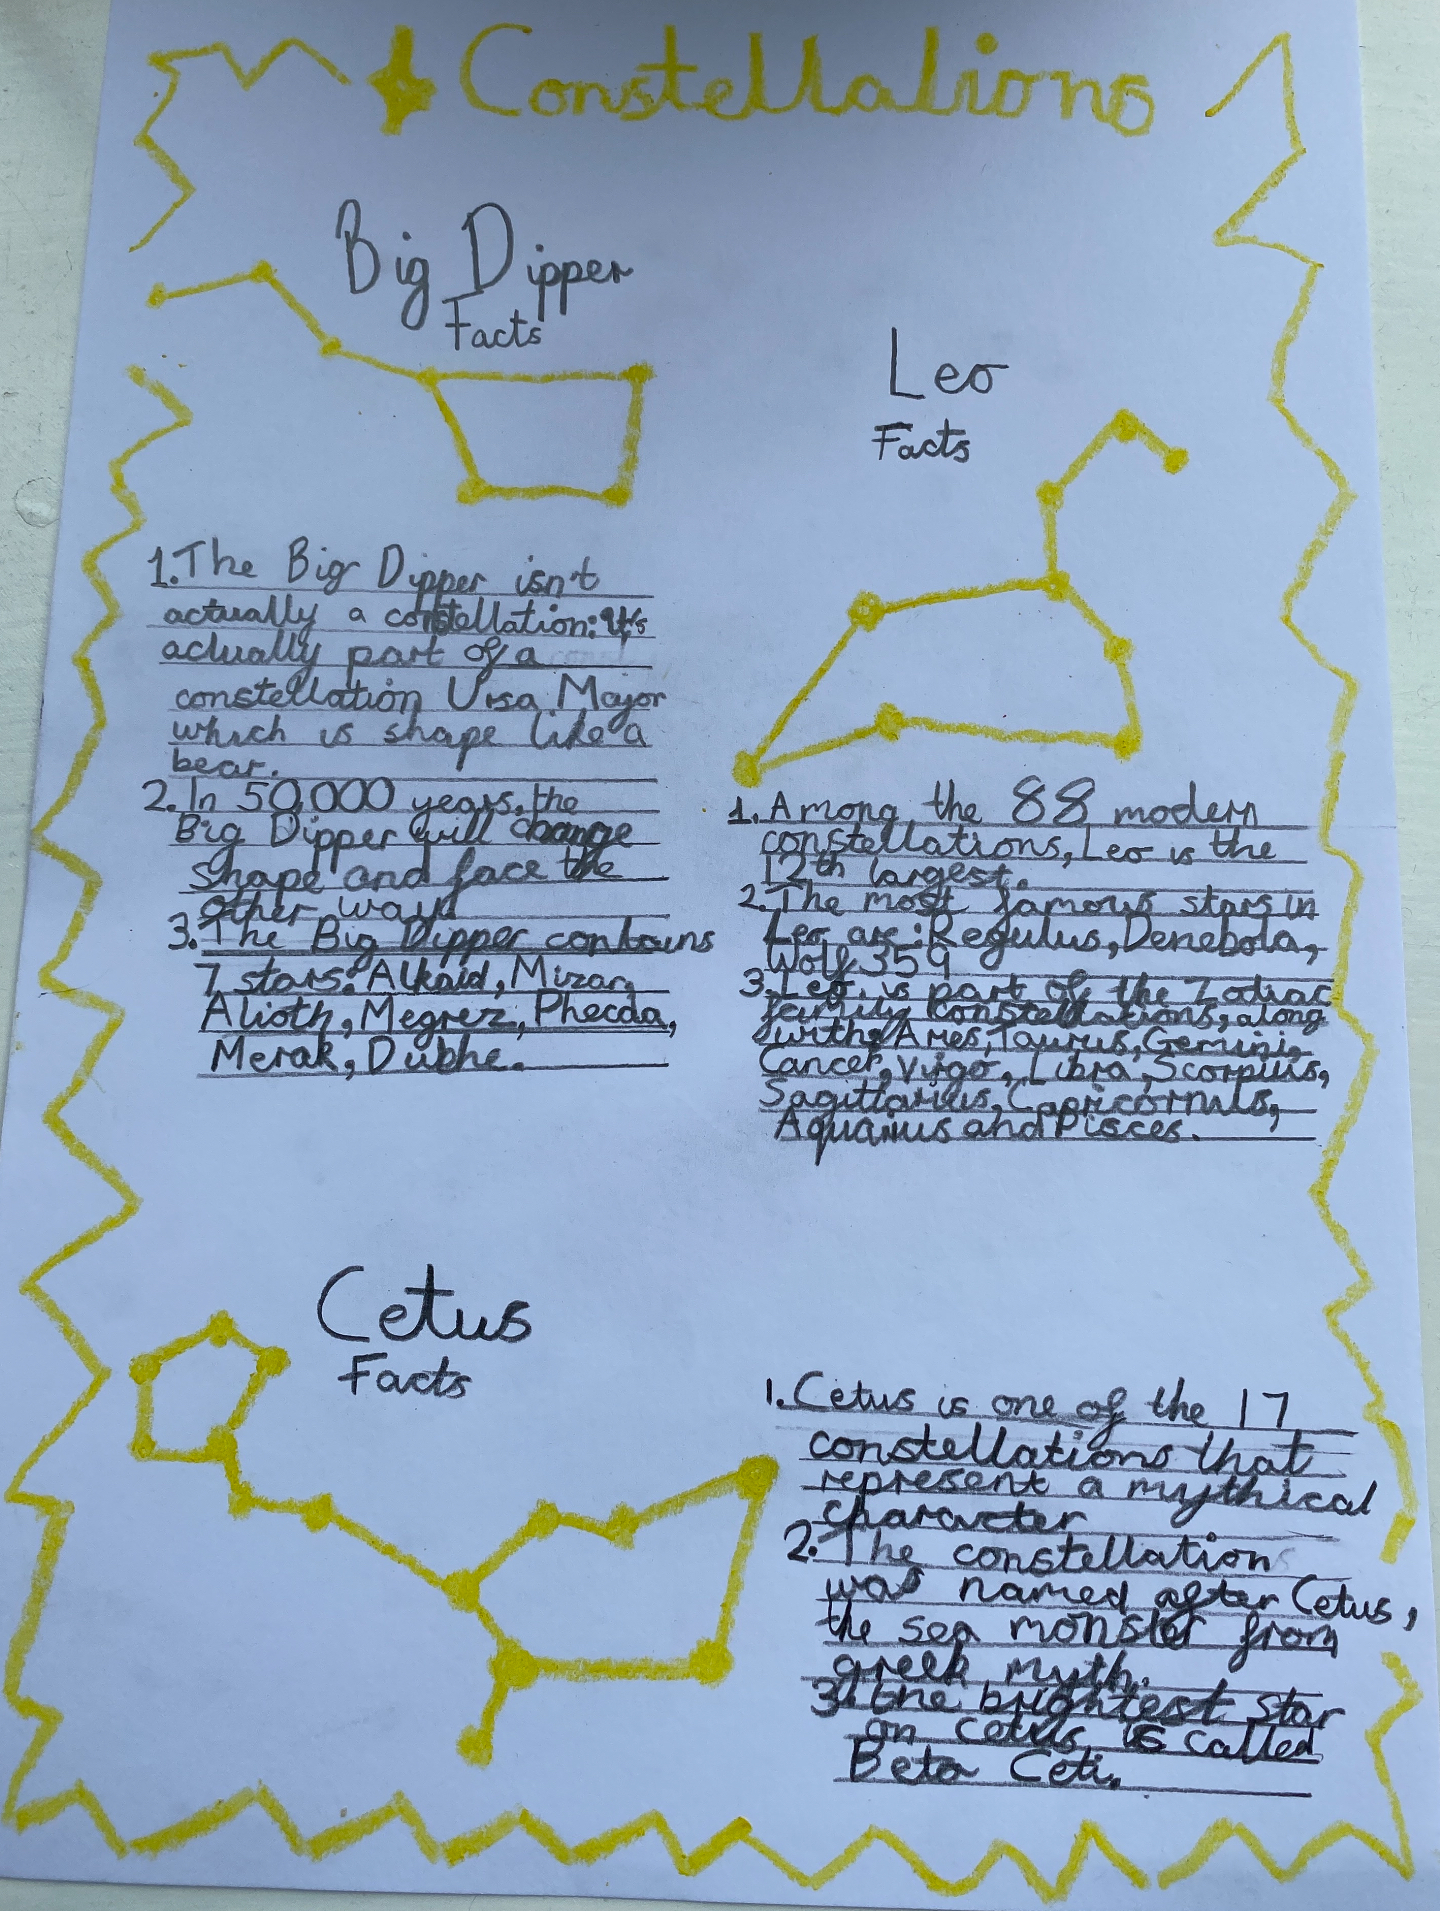 Constellations
Big Dipper
Facts
1. The Big Dipper isn't
actually a constellation: it's
actually part of a
constellation Ursa Major
which is shape like a
bear.
2. In 50,000 years, the
Big Dipper will change
shape and face the
other way.
3. The Big Dipper contains
7 stars: Alkaid, Mizar,
Alioth, Megrez, Phecda,
Merak, Dubhe.
Leo
Facts
1. Among the 88 modern
constellations, Leo is the
12th largest.
2. The most famous stars in
Leo are: Regulus, Denebola,
Wolf 359
3. Leo, is part of the Zodiac
family constellations, along
with: Aries, Taurus, Gemini,
Cancer, Virgo, Libra, Scorpius,
Sagittarius, Capricornus,
Aquarius and Pisces.
Cetus
Facts
1. Cetus is one of the 17
constellations that
represent a mythical
character
2. The constellation
was named after Cetus,
the sea monster from
greek myth.
3. the brightest star
on cetus is called
Beta Ceti.